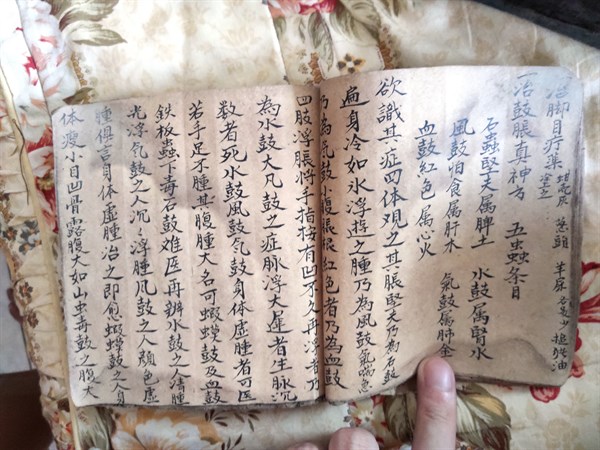 治脚目疔藥 葱頭 草麻 桐油
一治鼓脹真神方 五虫蠱条目
石蠱堅天属脾土 水鼓属腎水
風鼓怕食属肝木 氣鼓属肺金
血鼓紅色属心火
欲識其症四体观之其脹堅天乃為石鼓
遍身冷如氷浮遊之腫乃為風鼓氣喘急
乃為氣鼓小腹脹限紅色者乃為血鼓
四肢浮脹将手指按有凹不久再浮者乃
為水鼓大凡鼓之症脉浮大遅者生脉沉
数者死水鼓風鼓氕鼓身体虚腫者可医
若手足不腫其腹腫大名可蝦蟆鼓及血鼓
鉄板蟲下毒石鼓难医再辨水鼓之人清腫
光浮氕鼓之人沉浮腫凨鼓之人顔色虚
腫俱言身体虚腫治之即愈蝦蟆鼓之人身
体瘦小目凹骨露腹大如山虫毒鼓之腹大